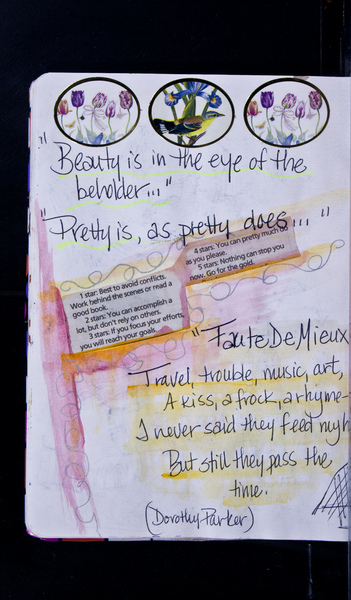 "Beauty is in the eye of the
beholder..."
"Pretty is, as pretty does... "
4 stars: You can pretty much do
as you please.
5 stars: Nothing can stop you
now. Go for the gold.
1 star: Best to avoid conflicts.
Work behind the scenes or read a
good book.
2 stars: You can accomplish a
lot, but don't rely on others.
3 stars: If you focus your efforts,
you will reach your goals.
"Faute De Mieux
Travel, trouble, music, art,
A kiss, a frock, a rhyme-
I never said they feed my h
But still they pass the
time.
(Dorothy Parker)